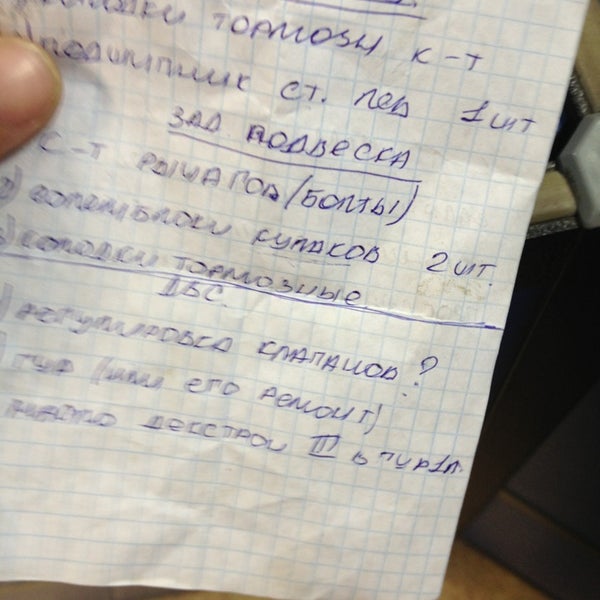 колодки тормозн к-т
подшипник ст. лев 1 шт
зад подвеска
к-т рычагов (болты)
сопемблоки кулаков 2 шт.
колодки тормозные
ДВС.
регулировка клапанов?
гур (или его ремонт)
масло декстрон III в гур 1л.